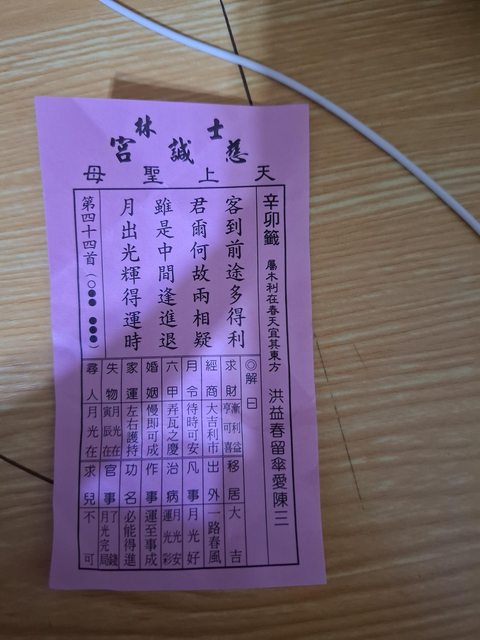 士林
慈諴宮
天上聖母
辛卯籤 屬木利在春天宜其東方 洪益春留傘愛陳三
客到前途多得利
君爾何故兩相疑
雖是中間逢進退
月出光輝得運時
第四十四首(○●● ●●●)
◎解曰
求財 漸利益亨可喜 移居 大吉
經商 大吉利市 出外 一路春風
月令 待時可安 凡事 月光好
六甲 弄瓦之慶 治病 月光安運光彩
婚姻 慢即可成 作事 運至事成
家運 左右護持 功名 必能得進
失物 月光在寅辰在 官事 了錢月光完局
尋人 月光在 求兒 不可